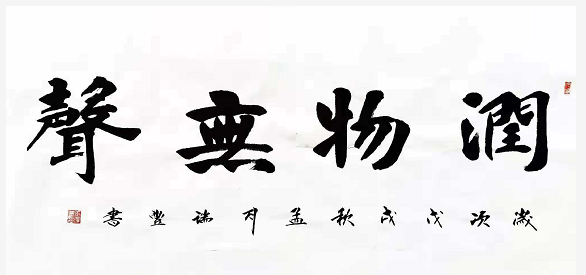 潤物無聲
歲次戊戌秋孟月瑞豐書